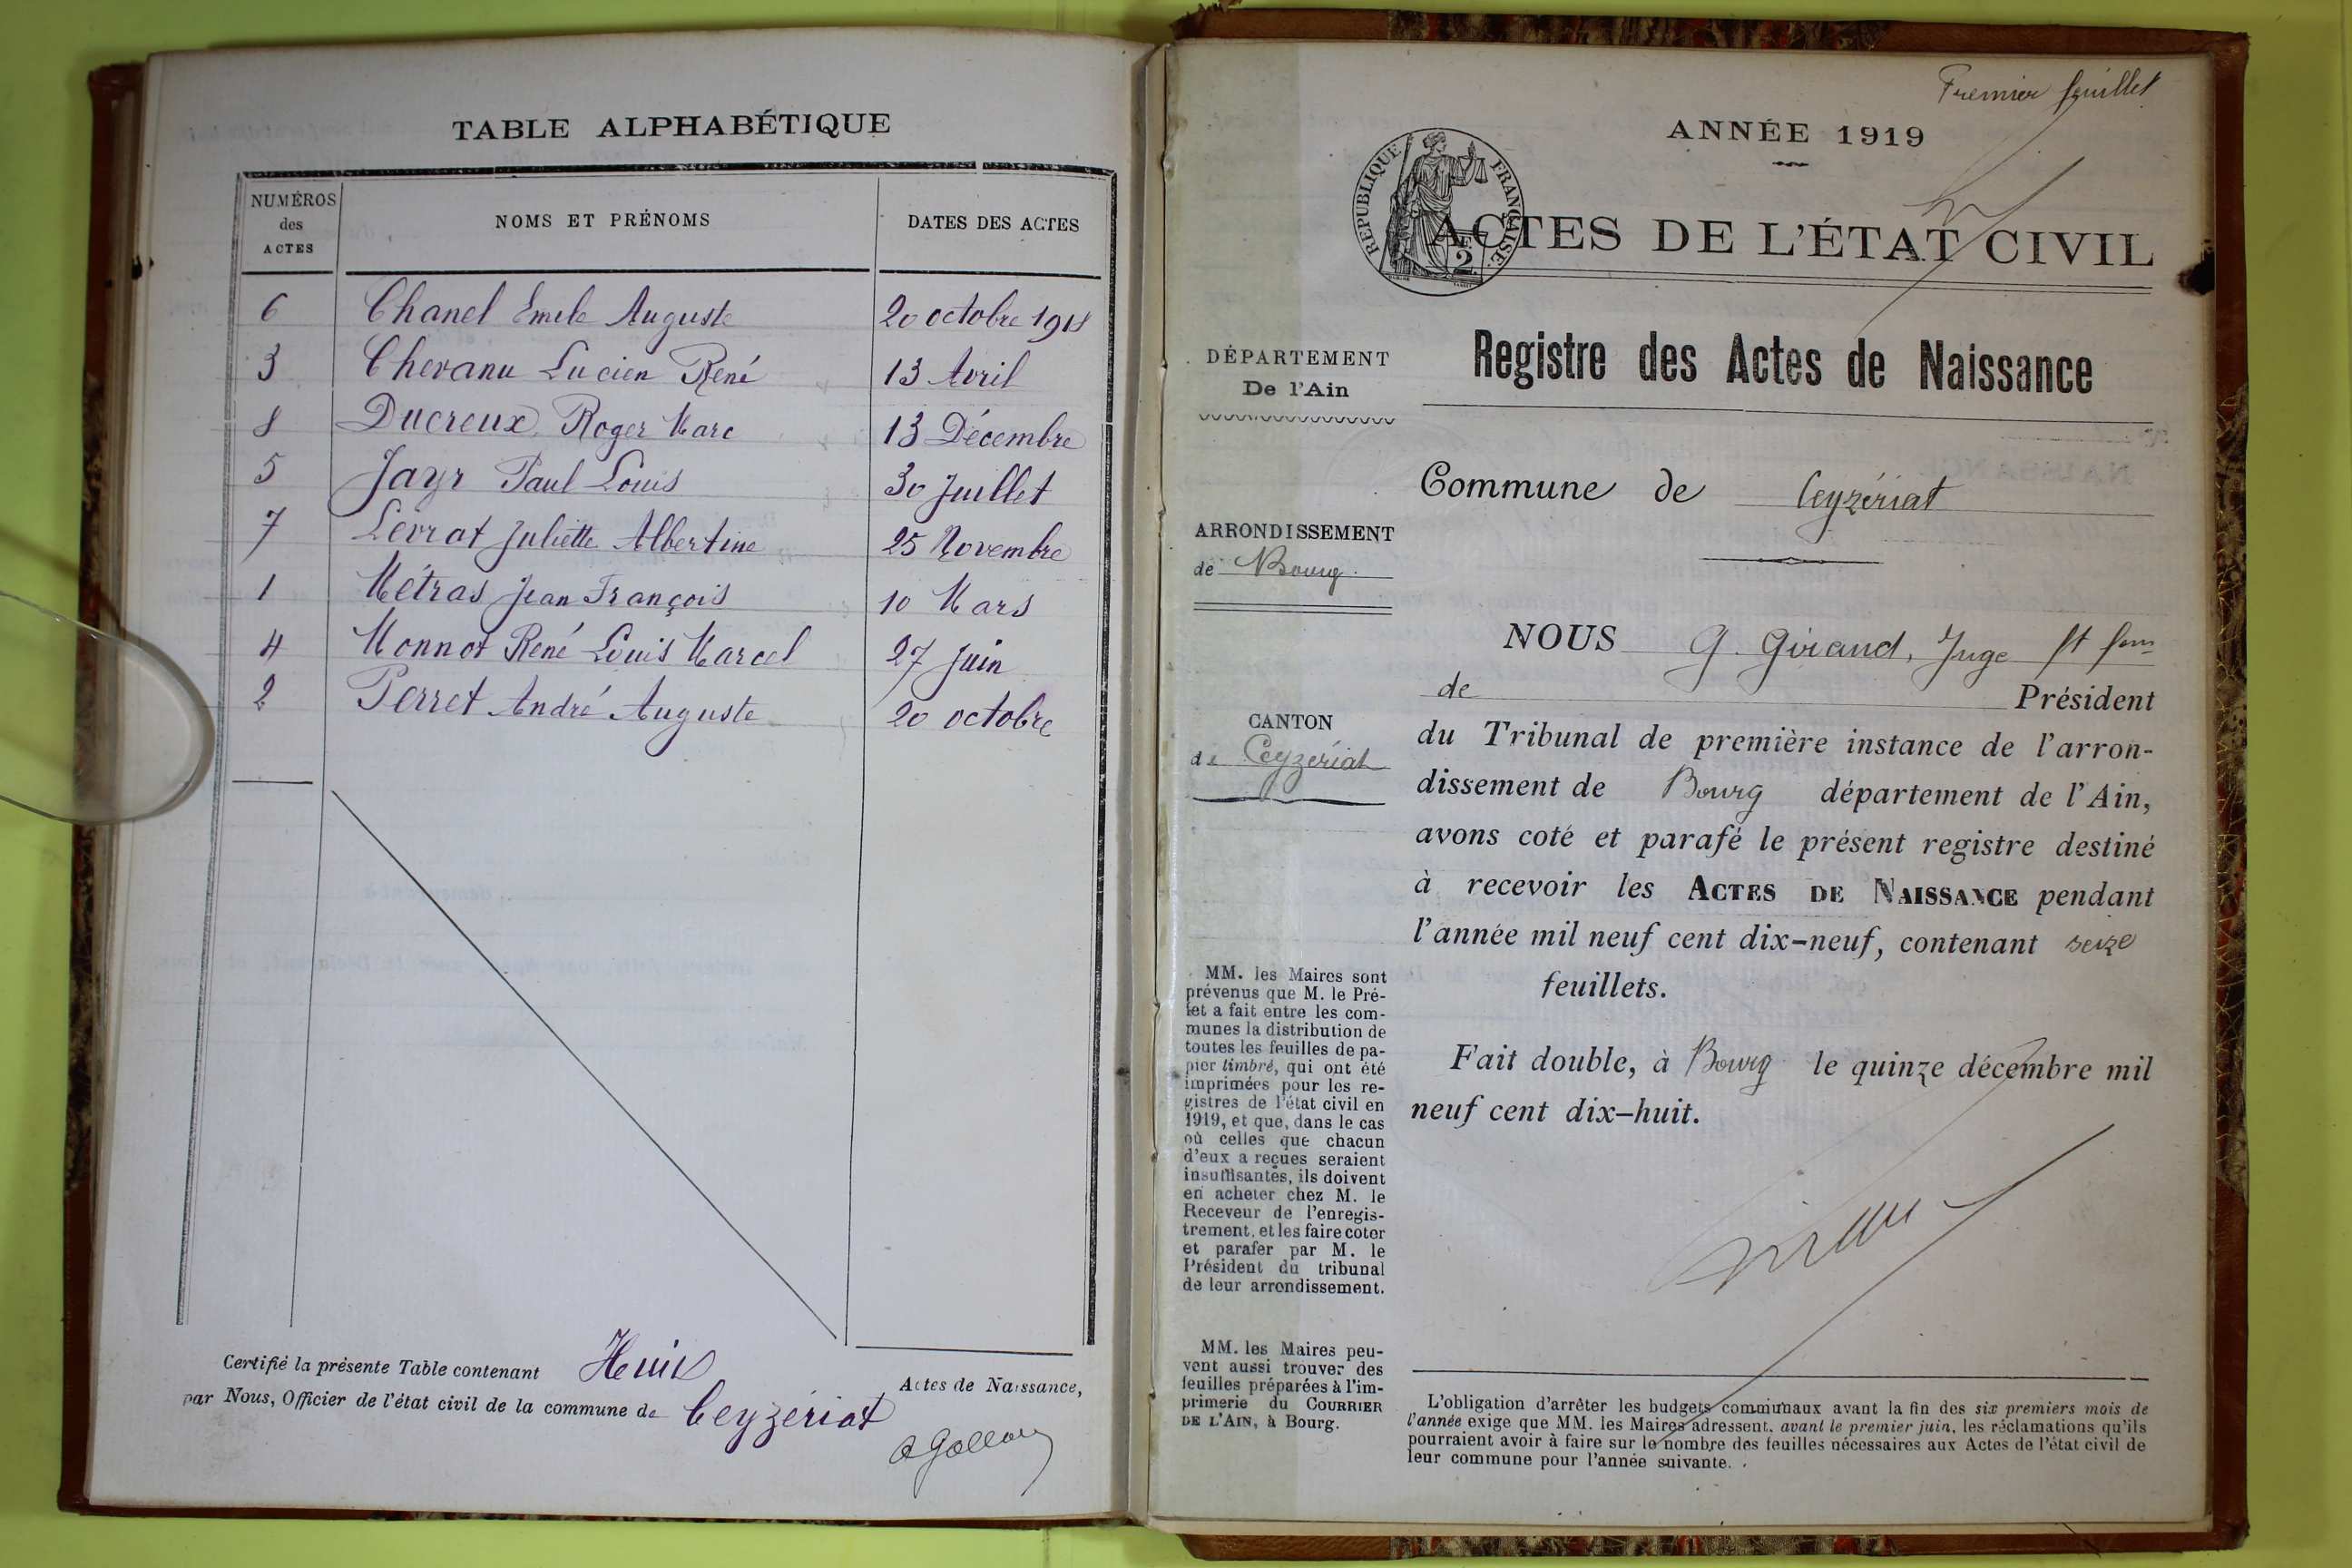 TABLE ALPHABÉTIQUE
NUMÉROS
des
ACTES
NOMS ET PRÉNOMS
DATES DES ACTES
6 Chanel Emile Auguste 20 octobre 1918
3 Chevanu Lucien René 13 Avril
8 Ducreux Roger Marc 13 Décembre
5 Jayr Paul Louis 30 Juillet
7 Levrat Juliette Albertine 25 Novembre
1 Métras Jean François 10 Mars
4 Monnot René Louis Marcel 27 Juin
2 Perret André Auguste 20 octobre
Certifié la présente Table contenant
Actes de Naissance,
par Nous, Officier de l'état civil de la commune de Ceyzériat
Premier feuillet
ANNÉE 1919
REPUBLIQUE FRANÇAISE.
2
ACTES DE L'ÉTAT CIVIL
Registre des Actes de Naissance
DÉPARTEMENT
De l'Ain
ARRONDISSEMENT
de Bourg.
CANTON
de Ceyzériat
MM. les Maires sont
prévenus que M. le Pré-
fet a fait entre les com-
munes la distribution de
toutes les feuilles de pa-
pier timbré, qui ont été
imprimées pour les re-
gistres de l'état civil en
1919, et que, dans le cas
où celles que chacun
d'eux a reçues seraient
insuffisantes, ils doivent
en acheter chez M. le
Receveur de l'enregis-
trement, et les faire coter
et parafer par M. le
Président du tribunal
de leur arrondissement.
MM. les Maires peu-
vent aussi trouver des
feuilles préparées à l'im-
primerie du COURRIER
DE L'AIN, à Bourg.
Commune de Ceyzériat
NOUS G. Giraud, Juge
de Président
du Tribunal de première instance de l'arron-
dissement de Bourg département de l'Ain,
avons coté et parafé le présent registre destiné
à recevoir les ACTES DE NAISSANCE pendant
l'année mil neuf cent dix-neuf, contenant seize
feuillets.
Fait double, à Bourg le quinze décembre mil
neuf cent dix-huit.
L'obligation d'arrêter les budgets communaux avant la fin des six premiers mois de
l'année exige que MM. les Maires adressent, avant le premier juin, les réclamations qu'ils
pourraient avoir à faire sur le nombre des feuilles nécessaires aux Actes de l'état civil de
leur commune pour l'année suivante.